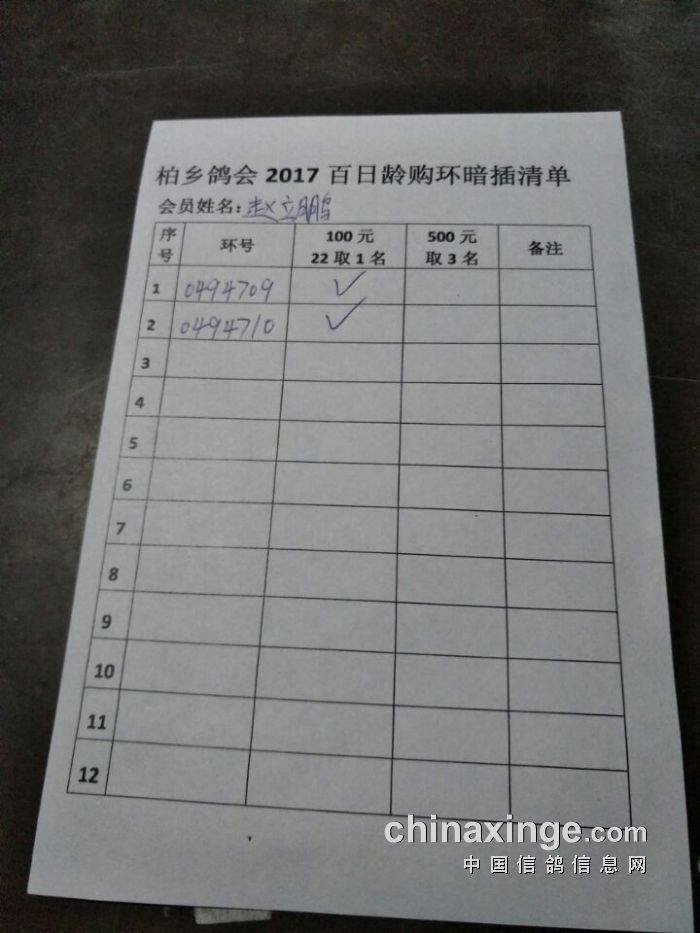 柏乡鸽会 2017 百日龄购环暗插清单
会员姓名：赵立鹏
序号 环号 100 元 22 取 1 名 500 元 取 3 名 备注
1 0494709 ✓
2 0494710 ✓
3
4
5
6
7
8
9
10
11
12
chinaxinge.com
中国信鸽信息网